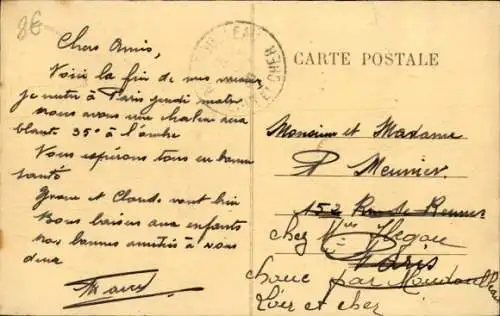 8€
Chers Amis,
Voici la fin de nos vacances
je rentre à Paris jeudi matin
nous avons une chaleur acca
blante 35° à l'ombre
Vous espérons tous en bonne
santé
et Claude vont bien
Bons baisers aux enfants
nos bonnes amitiés à vous
deux
CARTE POSTALE
Monsieur et Madame
P Meunier
152 Rue de Rennes
chez Mme
Paris
par
Loir et cher
LOIR-ET-CHER